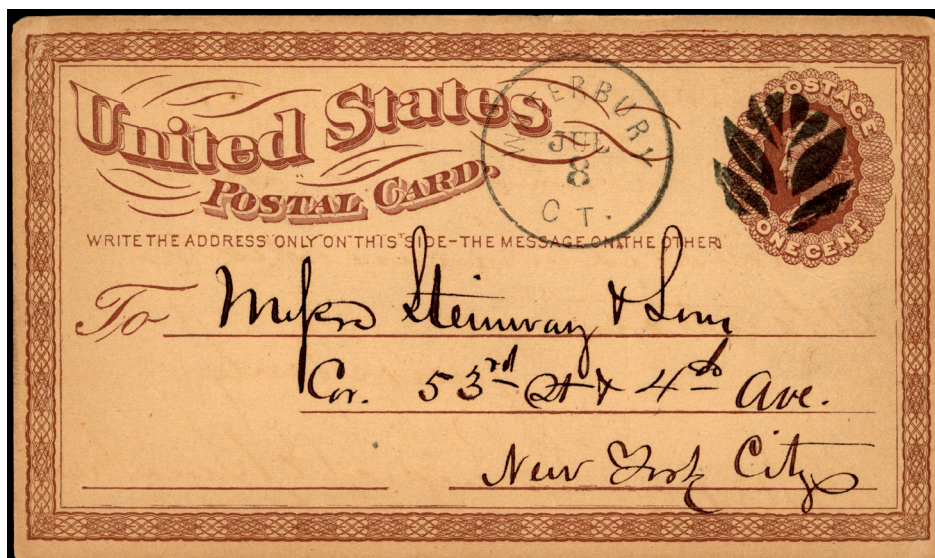 United States
POSTAL CARD.
WATERBURY
JUL
8
CT.
U.S. POSTAGE
ONE CENT
WRITE THE ADDRESS ONLY ON THIS SIDE-THE MESSAGE ON THE OTHER
To Messrs Steinway & Sons
Cor. 53rd St & 4th Ave.
New York City